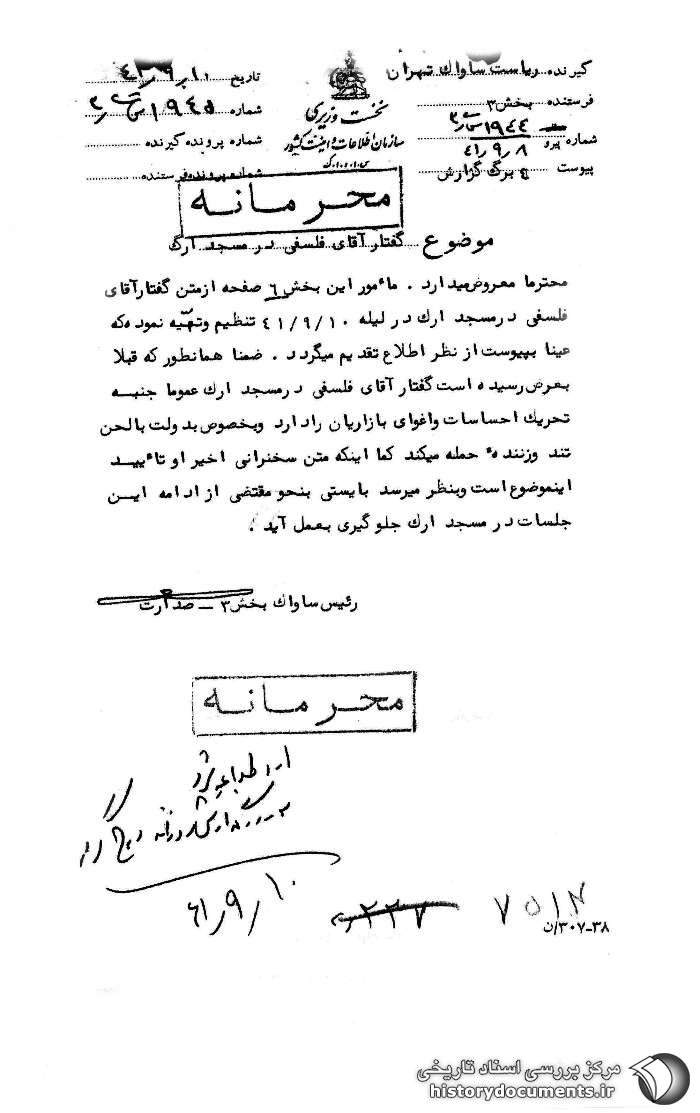 گیرنده ریاست ساواک تهران
فرستنده بخش ۳
شماره پیرو ۱۹۴۴
۴۱/۹/۸
پیوست برگ گزارش
نخست وزیری
سازمان اطلاعات و امنیت کشور
س.ا.و.ا.ک
تاریخ ۴۱/۹/۱۰
شماره ۱۹۴۵
شماره پرونده گیرنده
شماره پرونده فرستنده
محرمانه
موضوع گفتار آقای فلسفی در مسجد ارک
محترما معروض میدارد . مأمور این بخش ۶ صفحه از متن گفتار آقای
فلسفی در مسجد ارک در لیله ۴۱/۹/۱۰ تنظیم و تهیه نموده که
عینا بپیوست از نظر اطلاع تقدیم میگردد . ضمنا همانطور که قبلا
بعرض رسیده است گفتار آقای فلسفی در مسجد ارک عموما جنبه
تحریک احساسات و اغوای بازاریان را دارد و بخصوص بدولت با لحن
تند و زننده ء حمله میکند کما اینکه متن سخنرانی اخیر او تأیید
اینموضوع است و بنظر میرسد بایستی بنحو مقتضی از ادامه این
جلسات در مسجد ارک جلوگیری بعمل آید .
رئیس ساواک بخش ۳ – صدارت
محرمانه
۴۱/۹/۱۰
۲۲۷
۷۵۱۲
۳۰۷-۳۸/ن
مرکز بررسی اسناد تاریخی
historydocuments.ir